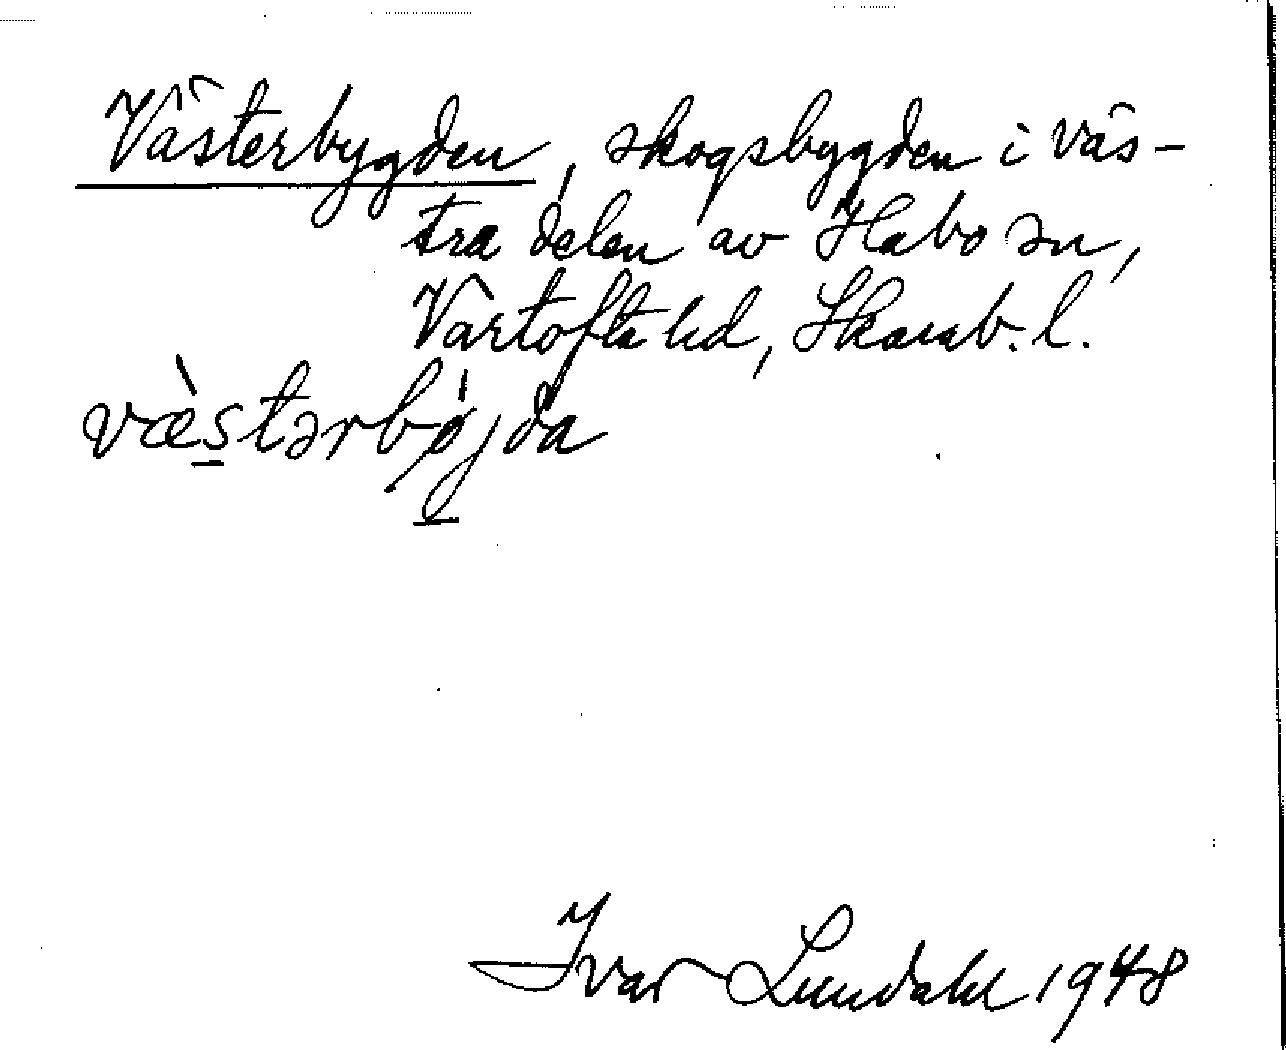 Västerbygden, skogsbygden i väs-
tra delen av Habo sn,
Vartofta hd, Skarab. l.
væ̀stərbǿjda
Ivar Lundahl 1948